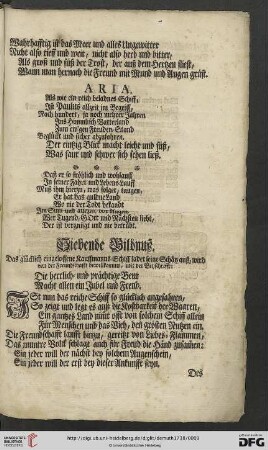 Wahrhafftig ist das Meer und alles Ungewitter
Nicht also tieff und weit, nicht also herb und bitter,
Als groß und süß der Trost, der auß dem Hertzen fliest,
Wann man hernach die Freund mit Mund und Augen grüst.
ARIA.
Als wie ein reich beladnes Schiff,
Ist Paulus allzeit im Begriff,
Noch hundert, ja noch mehrer Jahren
Ins Himmlisch Vatterland
Zum ewgen Freuden-Stand
Beglückt und sicher abzufahren.
Der eintzig Blick macht leicht und süß,
Was saur und schwer sich sehen ließ.
Daß er so fröhlich und wohlauff
In seiner Fahrt und Lebens-Lauff
Muß ihm hierzu, was folget, taugen,
Er hat das güldne Land
Wo nie der Todt bekandt
Im Sinn und allezeit vor Augen.
Wer Tugend, Gott und Nächsten liebt,
Der ist vergnügt und nie betrübt.
Siebende Bildnuß.
Das glücklich eingeloffene Kauffmanns-Schiff ladet seine Schätz auß, wird
von der Freundschafft bewillkommt, mit der Beyschrifft:
Die herrlich- und prächtige Beut
Macht allen ein Jubel und Freud.
IST nun das reiche Schiff so glücklich angefahren,
So zeigt und legt es auß die Kostbarkeit der Waaren,
Ein gantzes Land nimt offt von solchem Schiff allein
Für Menschen und das Vieh, den grösten Nutzen ein.
Die Freundschafft laufft hinzu, gereitzt von Liebes-Flammen,
Das muntre Volck schlagt auch für Freud die Händ zusamen:
Ein jeder will der nächst bey solchem Augenschein,
Ein jeder will der erst bey dieser Ankunfft seyn,
Des
UNIVERSITÄTS-
BIBLIOTHEK
HEIDELBERG